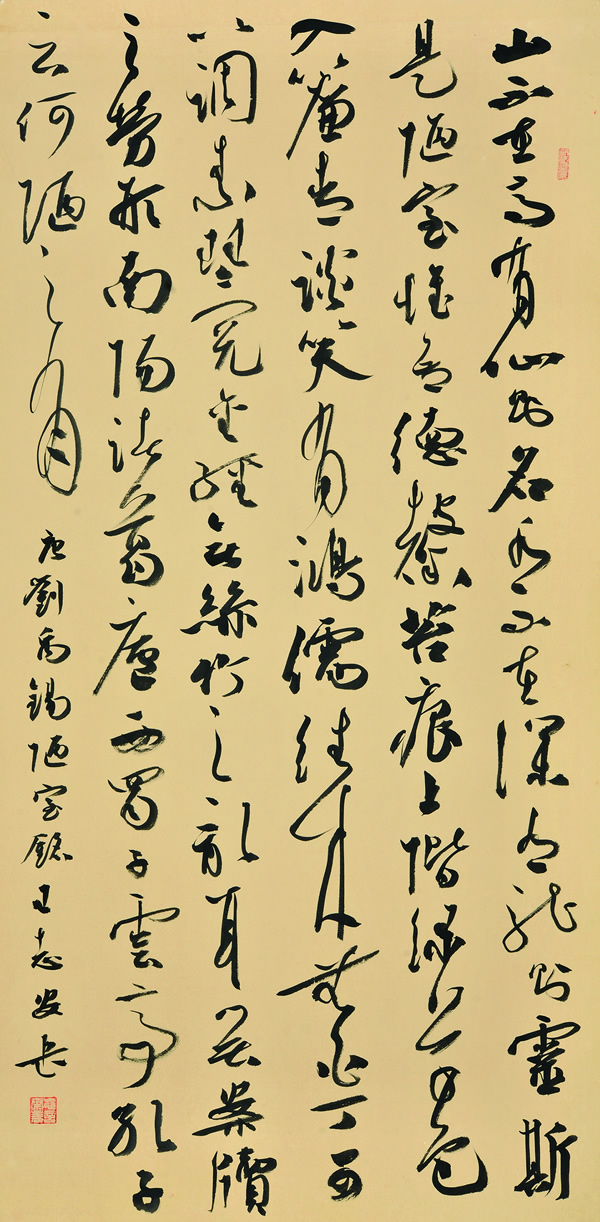 山不在高有仙則名水不在深有龍則靈斯
是陋室惟吾德馨苔痕上階綠草色
入簾青談笑有鴻儒往來無白丁可
以調素琴閱金經無絲竹之亂耳無案牘
之勞形南陽諸葛廬西蜀子雲亭孔子
云何陋之有
唐劉禹錫陋室銘王志安書